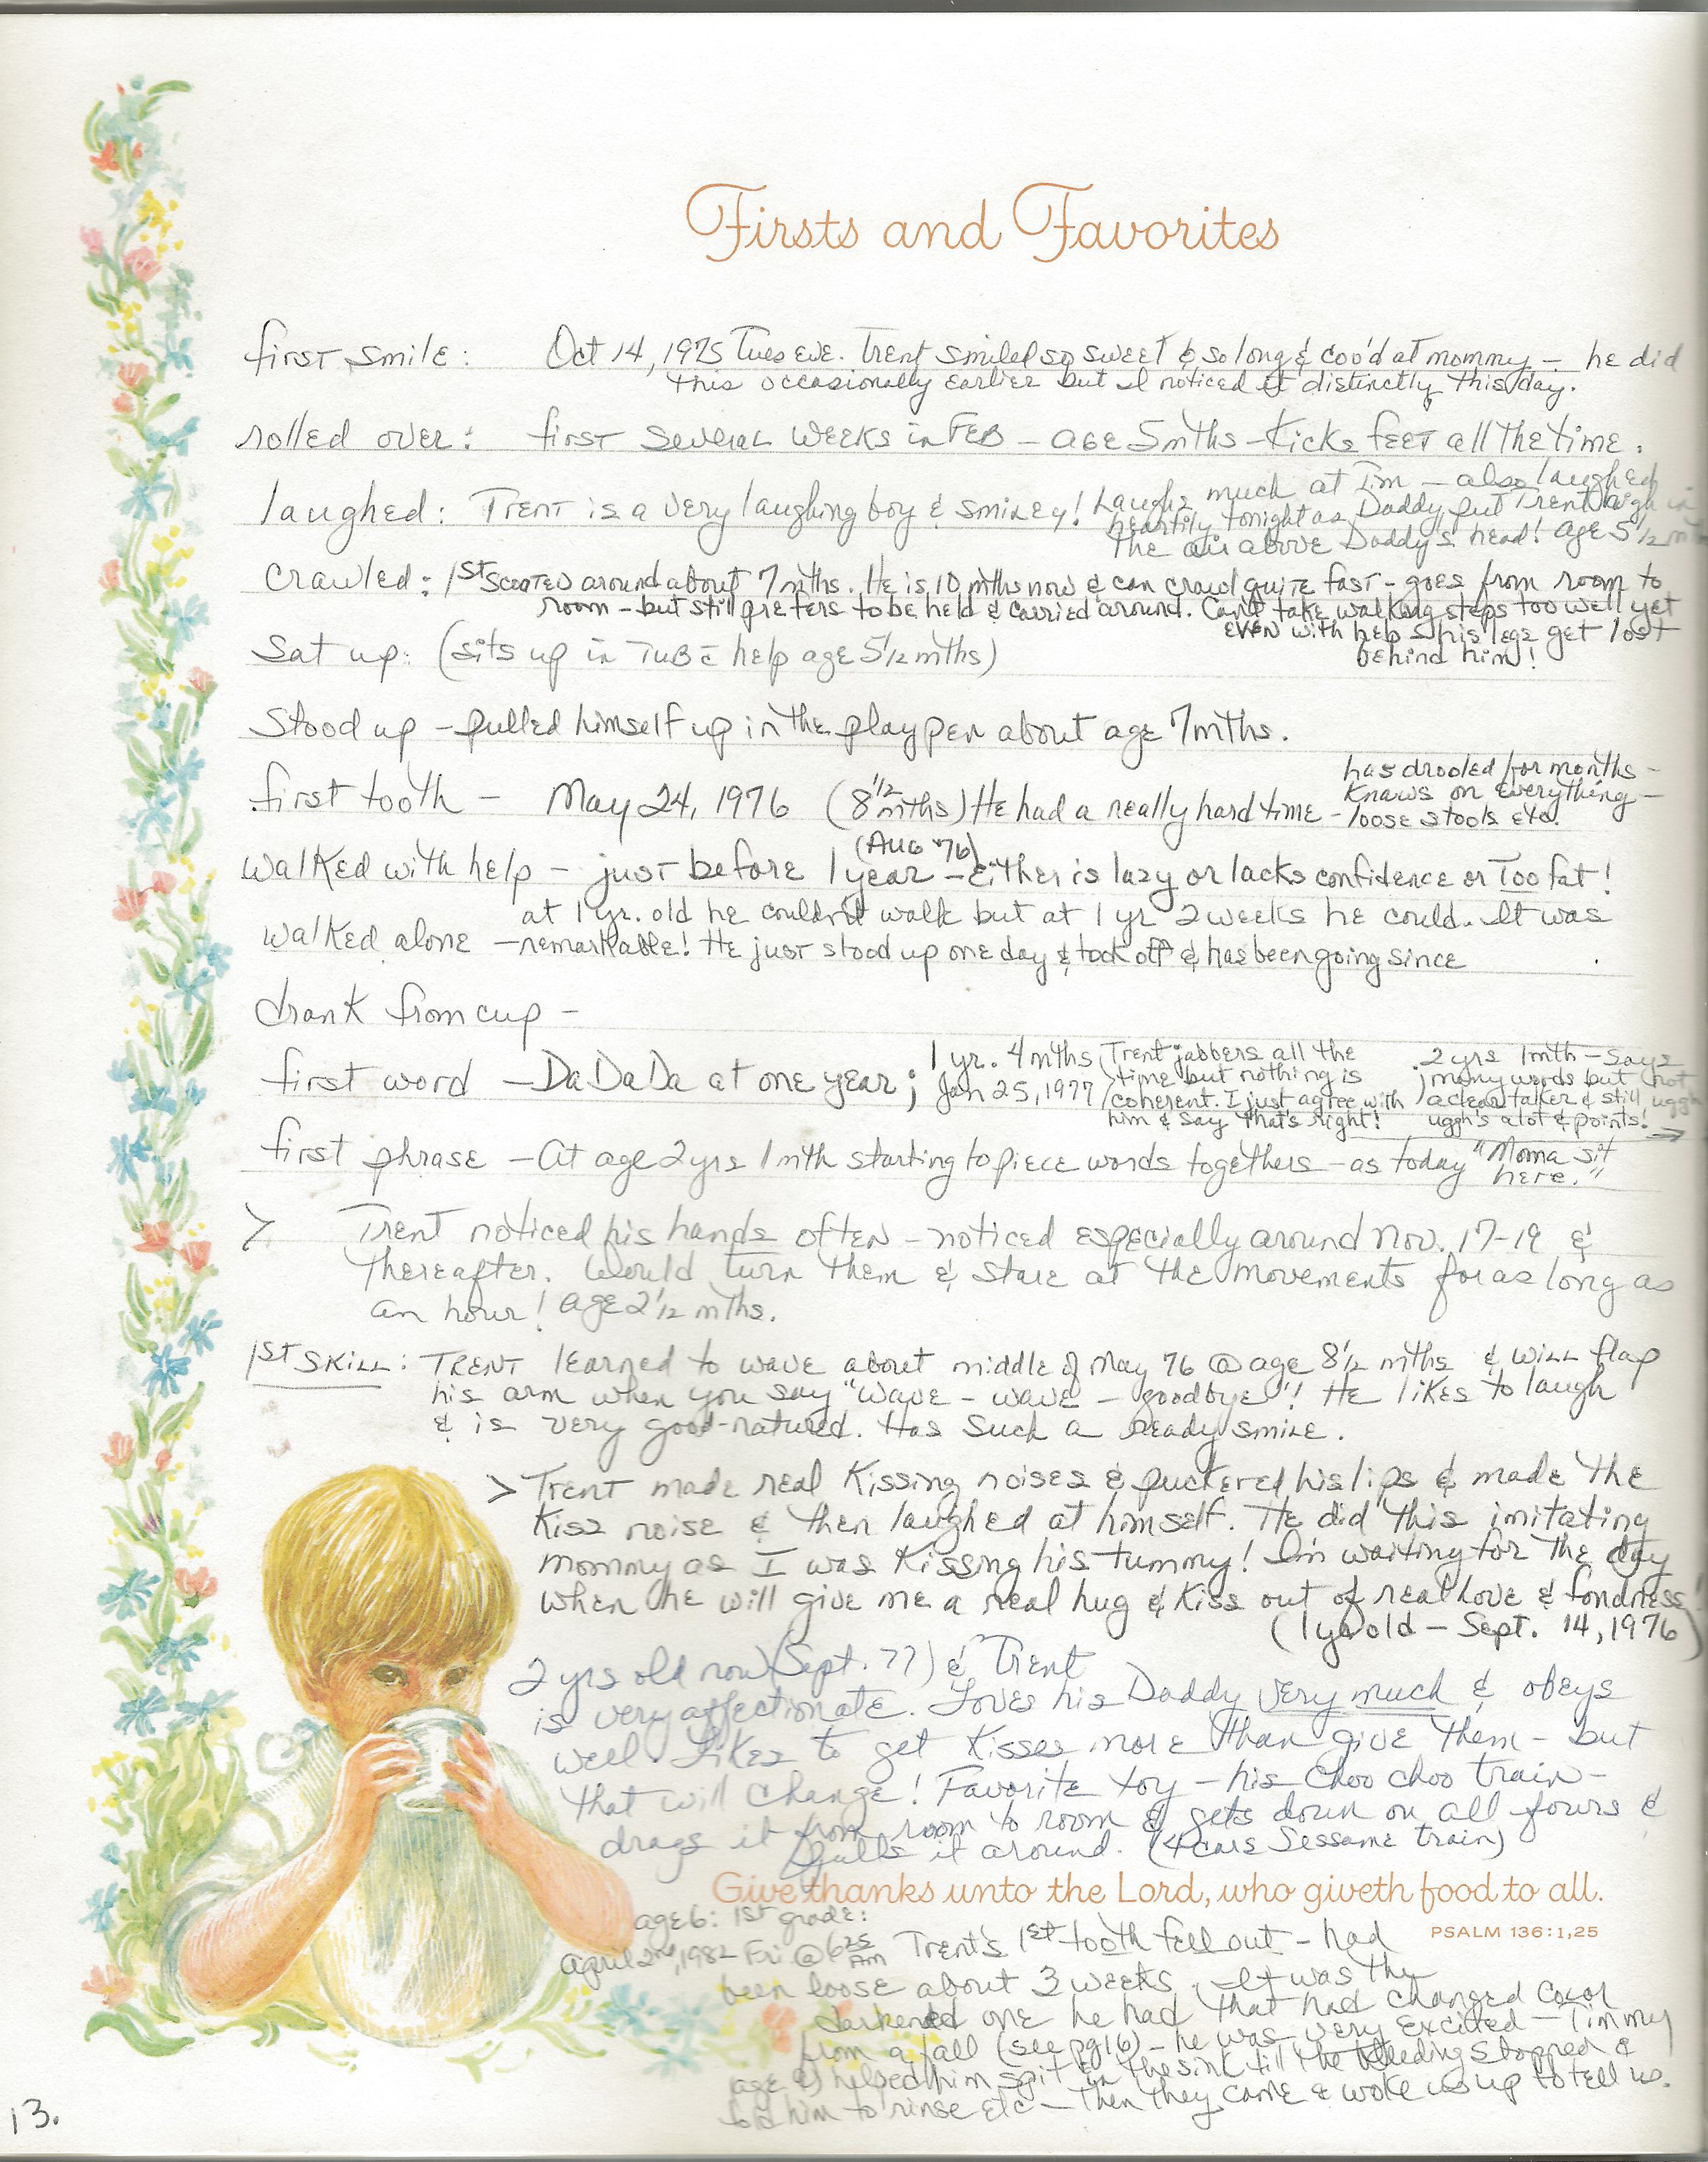 Firsts and Favorites
first smile: Oct 14, 1975 Tues eve. Trent smiled so sweet & so long & coo'd at mommy — he did
this occasionally earlier but I noticed it distinctly this day.
rolled over: first several weeks in Feb — age 5 mths — Kicks feet all the time.
laughed: Trent is a very laughing boy & smiley! Laughs much at Tim — also laughed
heartily tonight as Daddy put Trent high in
the air above Daddy's head! age 5 1/2 mths
crawled: 1st scooted around about 7 mths. He is 10 mths now & can crawl quite fast - goes from room to
room - but still prefers to be held & carried around. Can't take walking steps too well yet
even with help & his legs get lost
behind him!
Sat up: (sits up in tub c̄ help age 5 1/2 mths)
Stood up - pulled himself up in the playpen about age 7 mths.
first tooth - May 24, 1976 (8 1/2 mths) He had a really hard time -
has drooled for months -
Knaws on everything -
loose stools etc.
(Aug '76)
Walked with help - just before 1 year - Either is lazy or lacks confidence or Too fat!
at 1 yr. old he couldn't walk but at 1 yr 2 weeks he could. It was
walked alone - remarkable! He just stood up one day & took off & has been going since
drank from cup -
first word - Da Da Da at one year;
1 yr. 4 mths
Jan 25, 1977
Trent jabbers all the
time but nothing is
coherent. I just agree with
him & say that's right!
2 yrs 1 mth - says
many words but not
a clear talker & still
uggh's alot & points! →
first phrase - At age 2 yrs 1 mth starting to piece words togethers - as today "Moma sit
here."
> Trent noticed his hands often - noticed especially around Nov. 17-19 &
thereafter. Would turn them & stare at the movements for as long as
an hour! age 2 1/2 mths.
1st Skill: Trent learned to wave about middle of May 76 @ age 8 1/2 mths & will flap
his arm when you say "wave - wave - goodbye"! He likes to laugh
& is very good-natured. Has such a ready smile.
> Trent made real Kissing noises & puckered his lips & made the
Kiss noise & then laughed at himself. He did this imitating
mommy as I was Kissing his tummy! I'm waiting for the day
when he will give me a real hug & Kiss out of real love & fondness!
(1 yr old - Sept. 14, 1976)
2 yrs old now (Sept. 77) & Trent
is very affectionate. Loves his Daddy very much & obeys
well. Likes to get Kisses more than give them - but
that will change! Favorite toy - his choo choo train -
drags it from room to room & gets down on all fours &
pulls it around. (4 cars Sessame train)
Give thanks unto the Lord, who giveth food to all.
PSALM 136:1,25
age 6: 1st grade:
April 2nd, 1982 Fri @ 6 25 AM Trent's 1st tooth fell out - had
been loose about 3 weeks. It was the
darkened one he had that had changed color
from a fall (see pg 16) - he was very excited - Timmy
age helped him spit in the sink till the bleeding stopped &
told him to rinse etc - then they came & woke us up to tell us.
13.